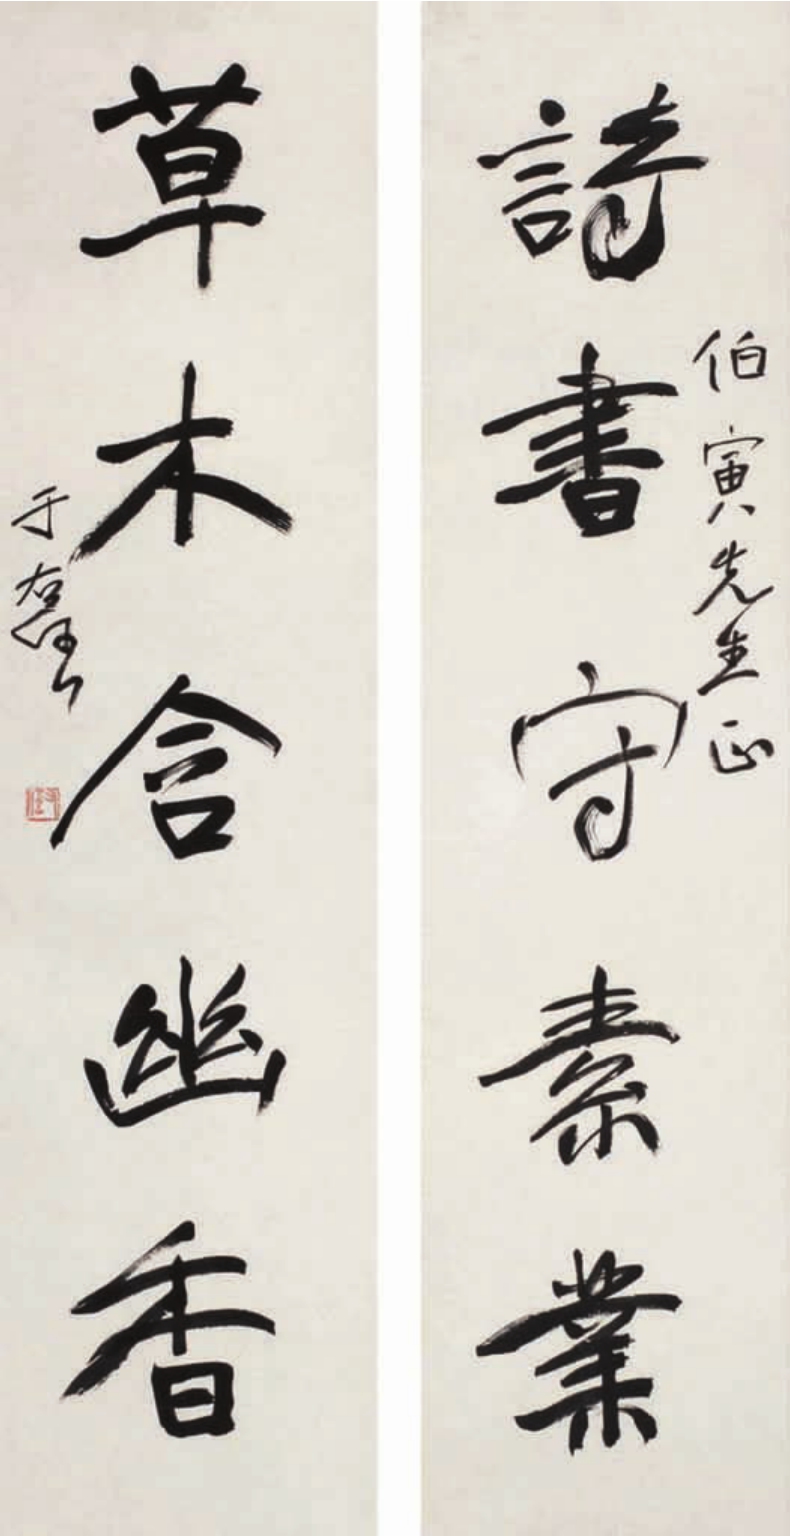 伯寅先生正
詩書守素業
草木含幽香
于右任